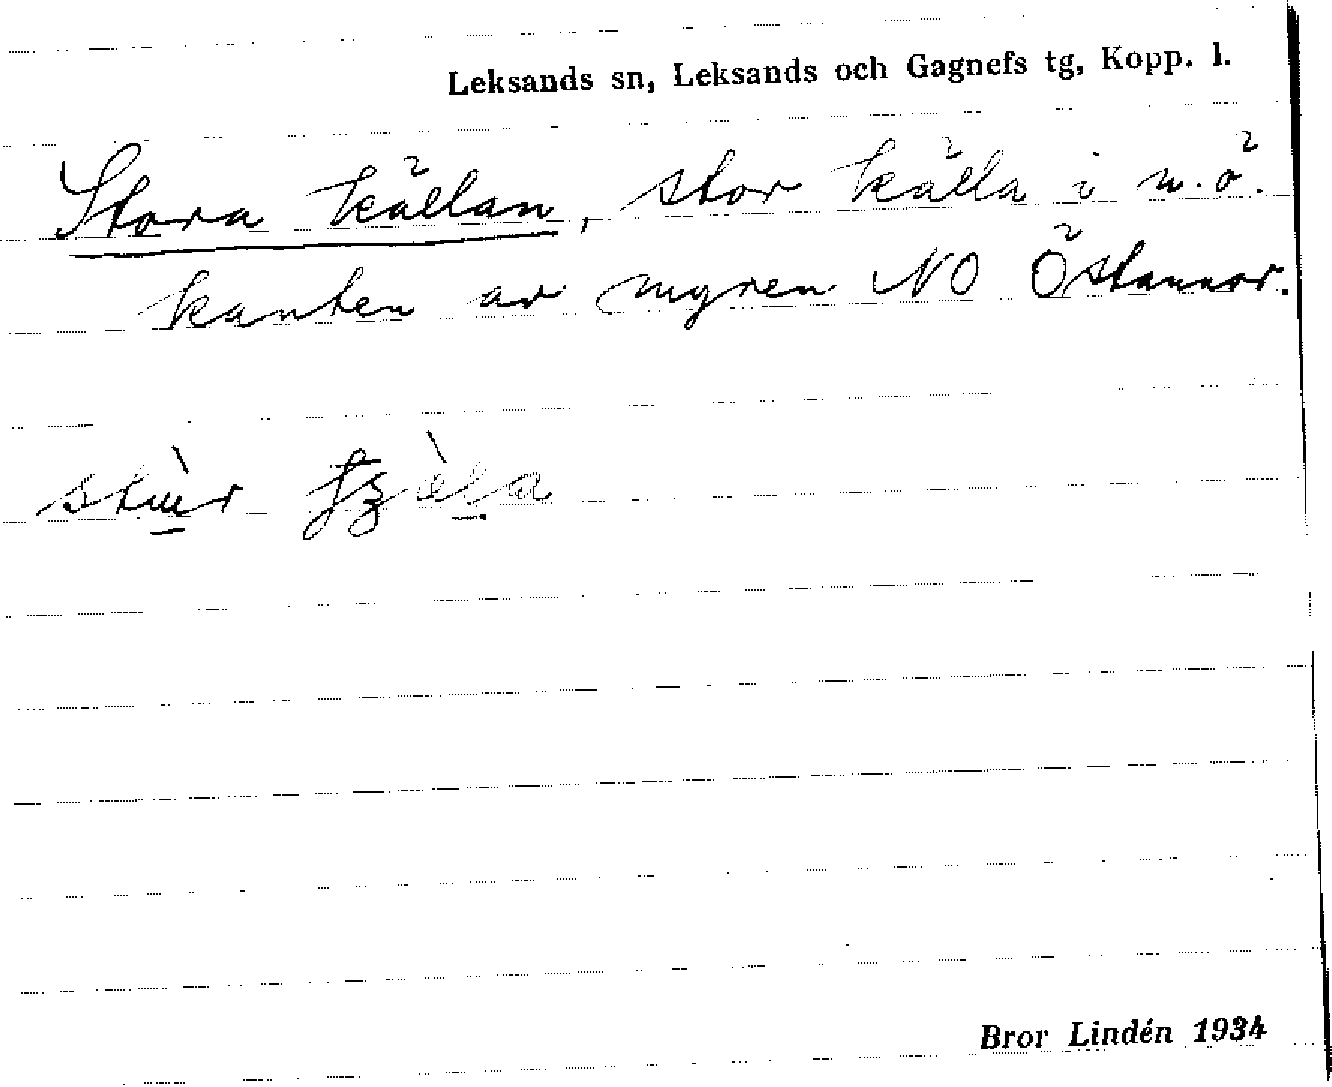 Leksands sn, Leksands och Gagnefs tg, Kopp. l.
Stora källan, stor källa i n.ö.
kanten av myren NO Östannor.
stùr
Bror Lindén 1934